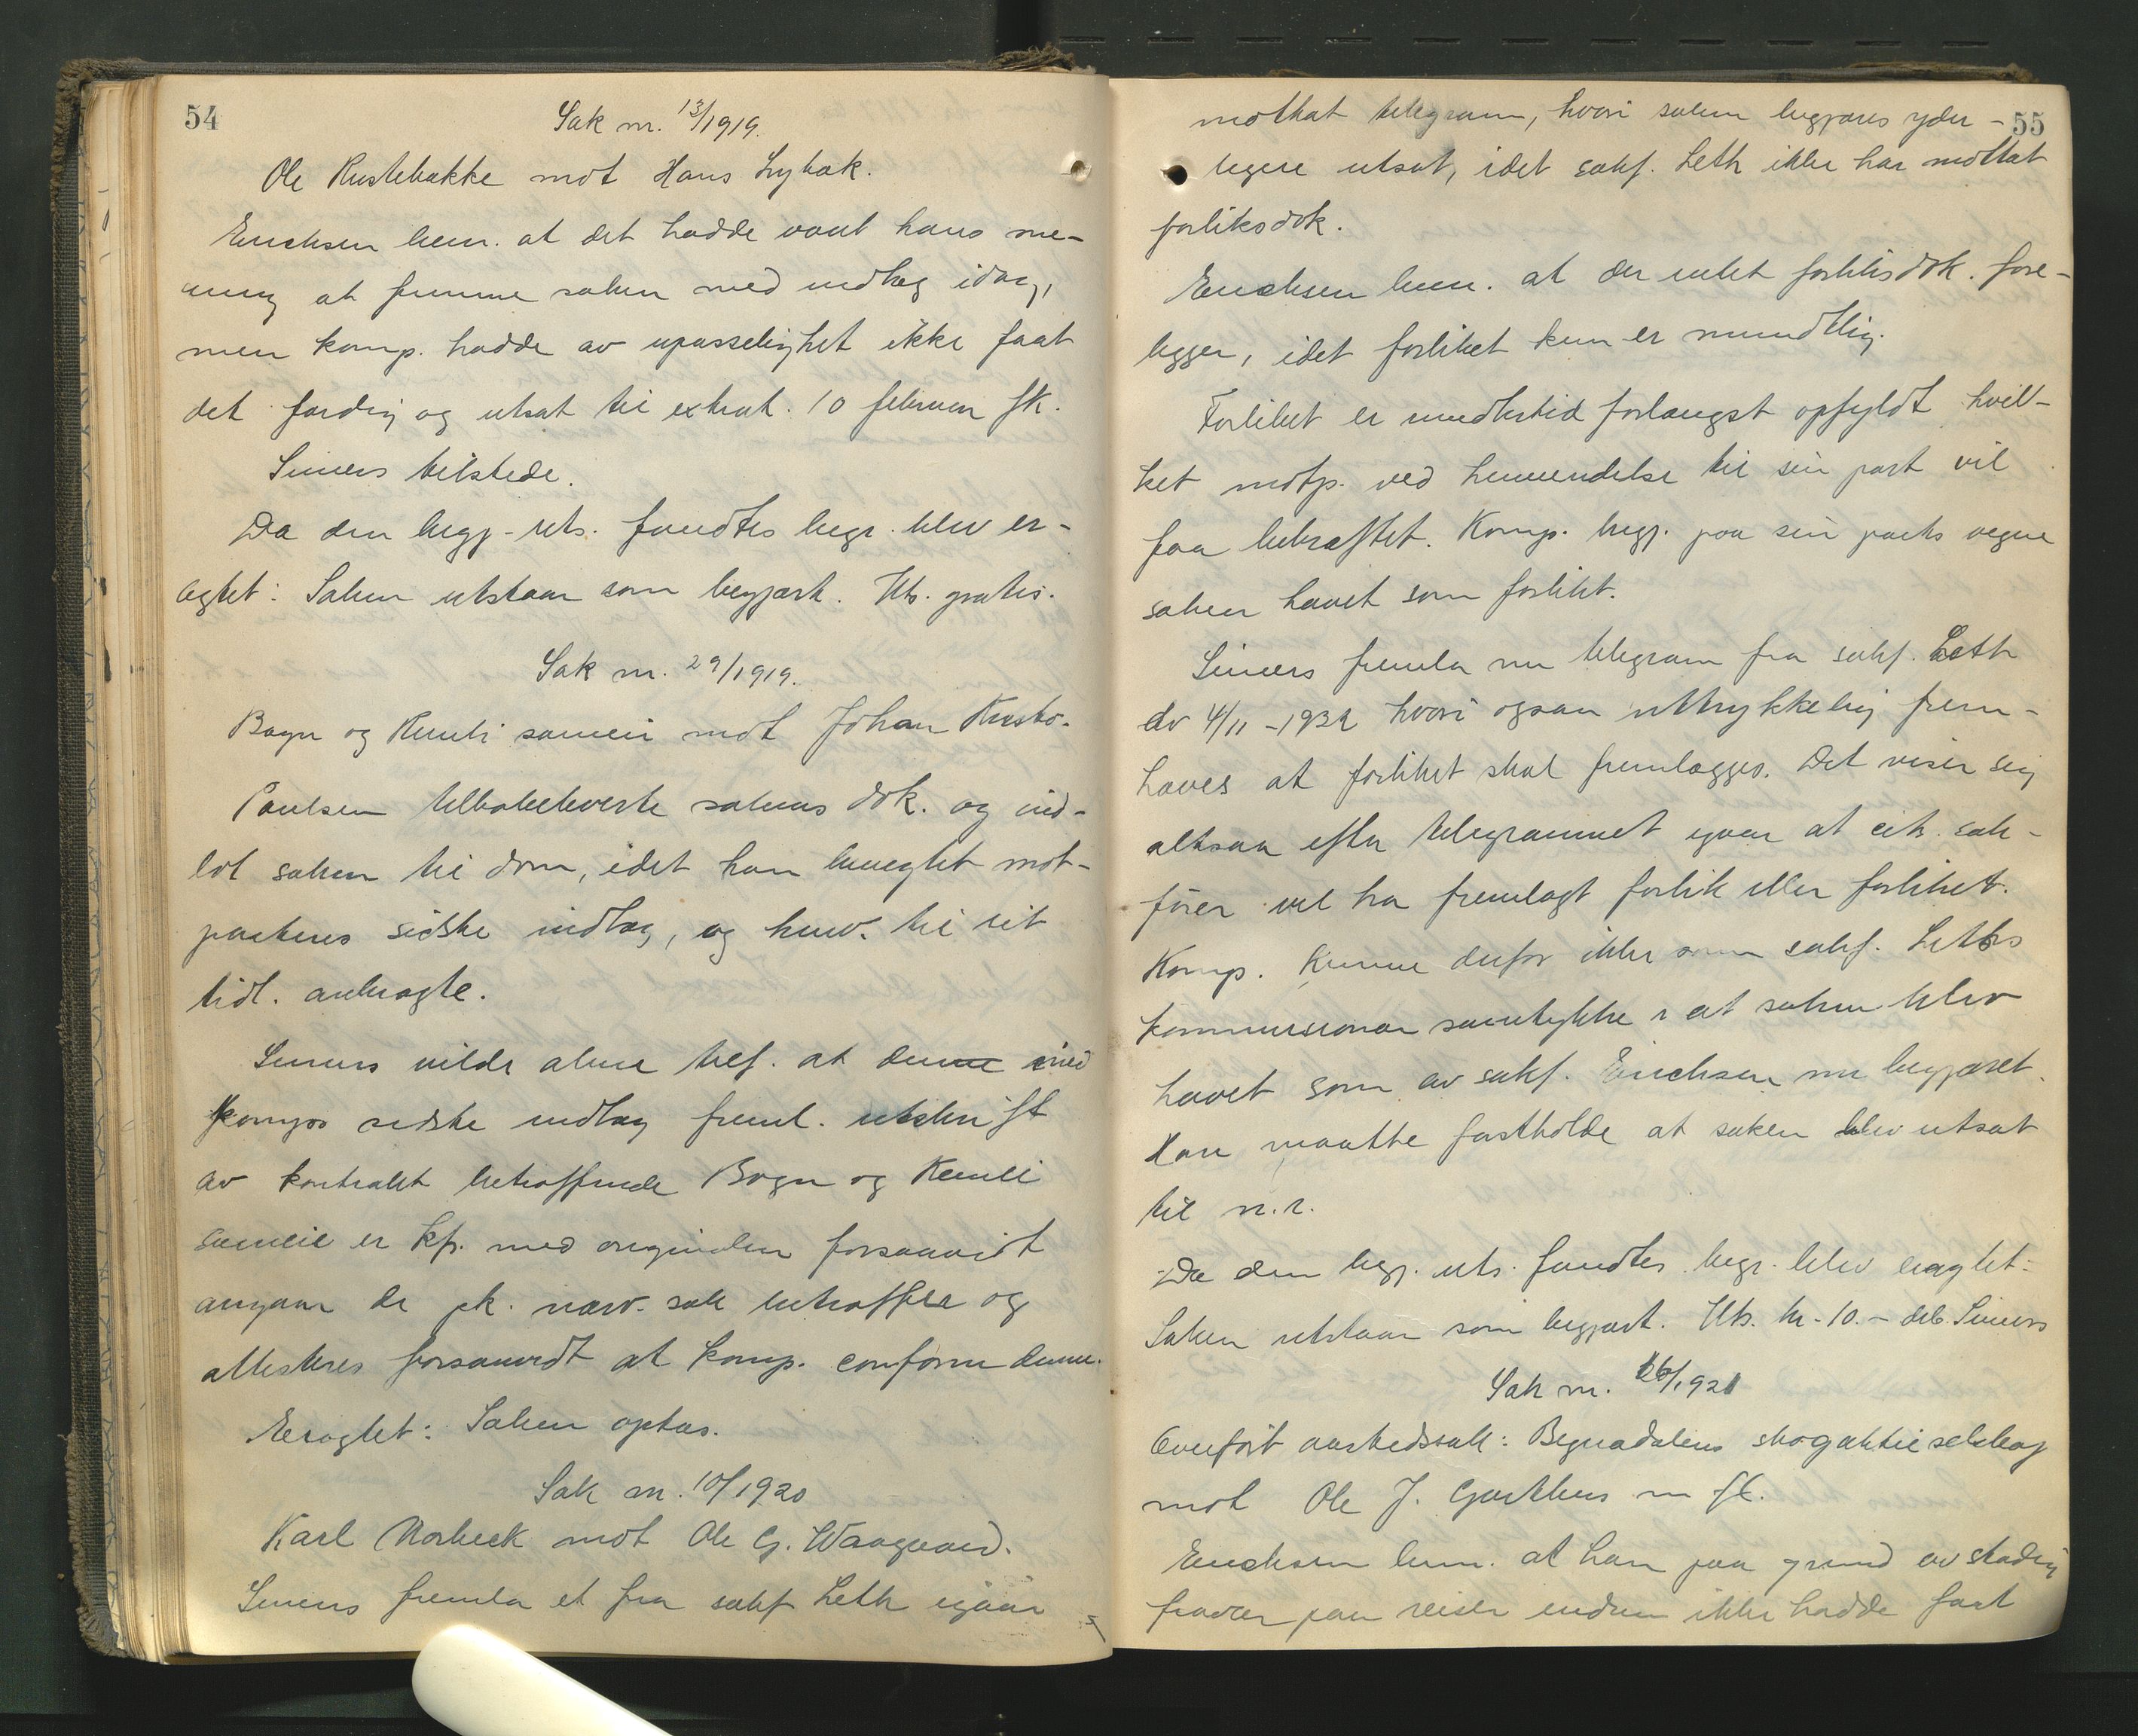 54
Sak nr. 13/1919.
Ole Rustebakke mot Hans Lybæk.
Erichsen bem. at det hadde vært hans me-
ning at fremme saken med indlæg idag,
men komp. hadde av upasselighet ikke faat
det færdig og utsat til extrat. 10 februar fk.
Siniers tilstede.
Da den begj. uts. fandtes begr. blev er-
agtet: Saken utstaar som begjært. Uts. gratis.
Sak nr. 29/1919.
Bagn og Reinli sameie mot Johan
Paulsen tilbakeleverte sakens dok. og ind-
lot saken til dom, idet han benegtet mot-
partens sidste indlæg, og henv. til sit
tidl. anbragte.
Siniers vilde alene tilf. at den med
komps sidste indlæg freml. utskrift
av kontrakt betræffende Bagn og Reinli
sameie er kfr. med originalen forsaavidt
angaar de pk. nærv. sak betræffer og
attesteres forsaavidt at komp. conform denne.
Eragtet: Saken optas.
Sak nr. 10/1920
Karl Norbeck mot Ole G. Waagaard.
Siniers fremla et fra sakf. Leth igaar
55
mottat telegram, hvori saken begjæres yder-
ligere utsat, idet sakf. Leth ikke har mottat
forliksdok.
Erichsen bem. at der intet forliksdok. fore-
ligger, idet forliket kun er mundtlig.
Forliket er imidlertid forlængst opfyldt hvil-
ket motp. ved henvendelse til sin part vil
faa bekræftet. Komp. begj. paa sin parts vegne
saken hævet som forlikt.
Siniers fremla nu telegram fra sakf. Leth
av 4/11 - 1921 hvori ogsaa uttrykkelig frem-
hæves at forliket skal fremlægges. Det viser sig
altsaa efter telegrammet igaar at cit. sak-
fører vil ha fremlagt forlik eller forliket.
Komp. kunne derfor ikke som sakf. Leths
kommissionær samtykke i at saken blev
hævet som av sakf. Erichsen nu begjæret.
Han maatte fastholde at saken blev utsat
til n.r.
Da den begj. uts. fandtes begr. blev eragtet:
Saken utstaar som begjært. Uts. kr. 10.- deb. Siniers
Sak nr. 26/1921
Overført aastedssak: Begnadalens skogaktieselskap
mot Ole J. Garthus m fl.
Erichsen bem. at han paa grund av stadig
fravær paa reiser endnu ikke hadde faat